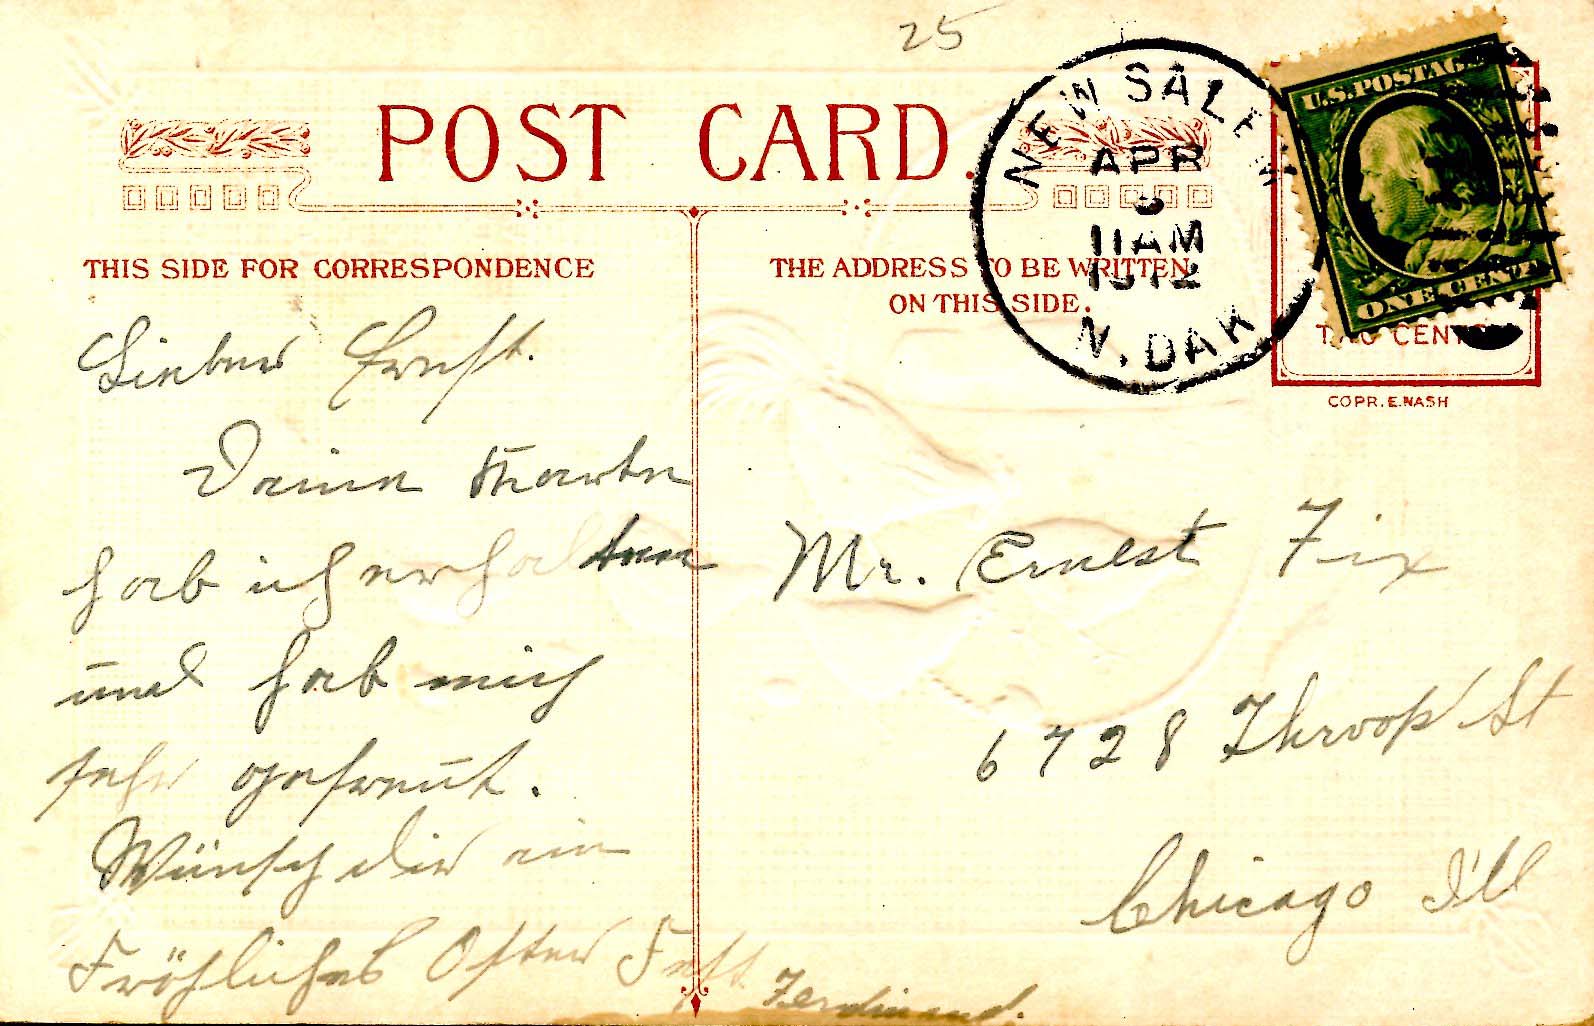 25
POST CARD.
NEW SALEM
APR
5
11 AM
1912
N. DAK
U.S. POSTAGE
ONE CENT
CENT
COPR. E. NASH
THIS SIDE FOR CORRESPONDENCE
THE ADDRESS TO BE WRITTEN
ON THIS SIDE.
Lieber Ernst.
Deine Karte
hab ich erhalten
und hab mich
sehr gefreut.
Wünsch dir ein
Fröhliches Oster Fest
Ferdinand.
Mr. Ernest Fix
6728 Throop St
Chicago Ill